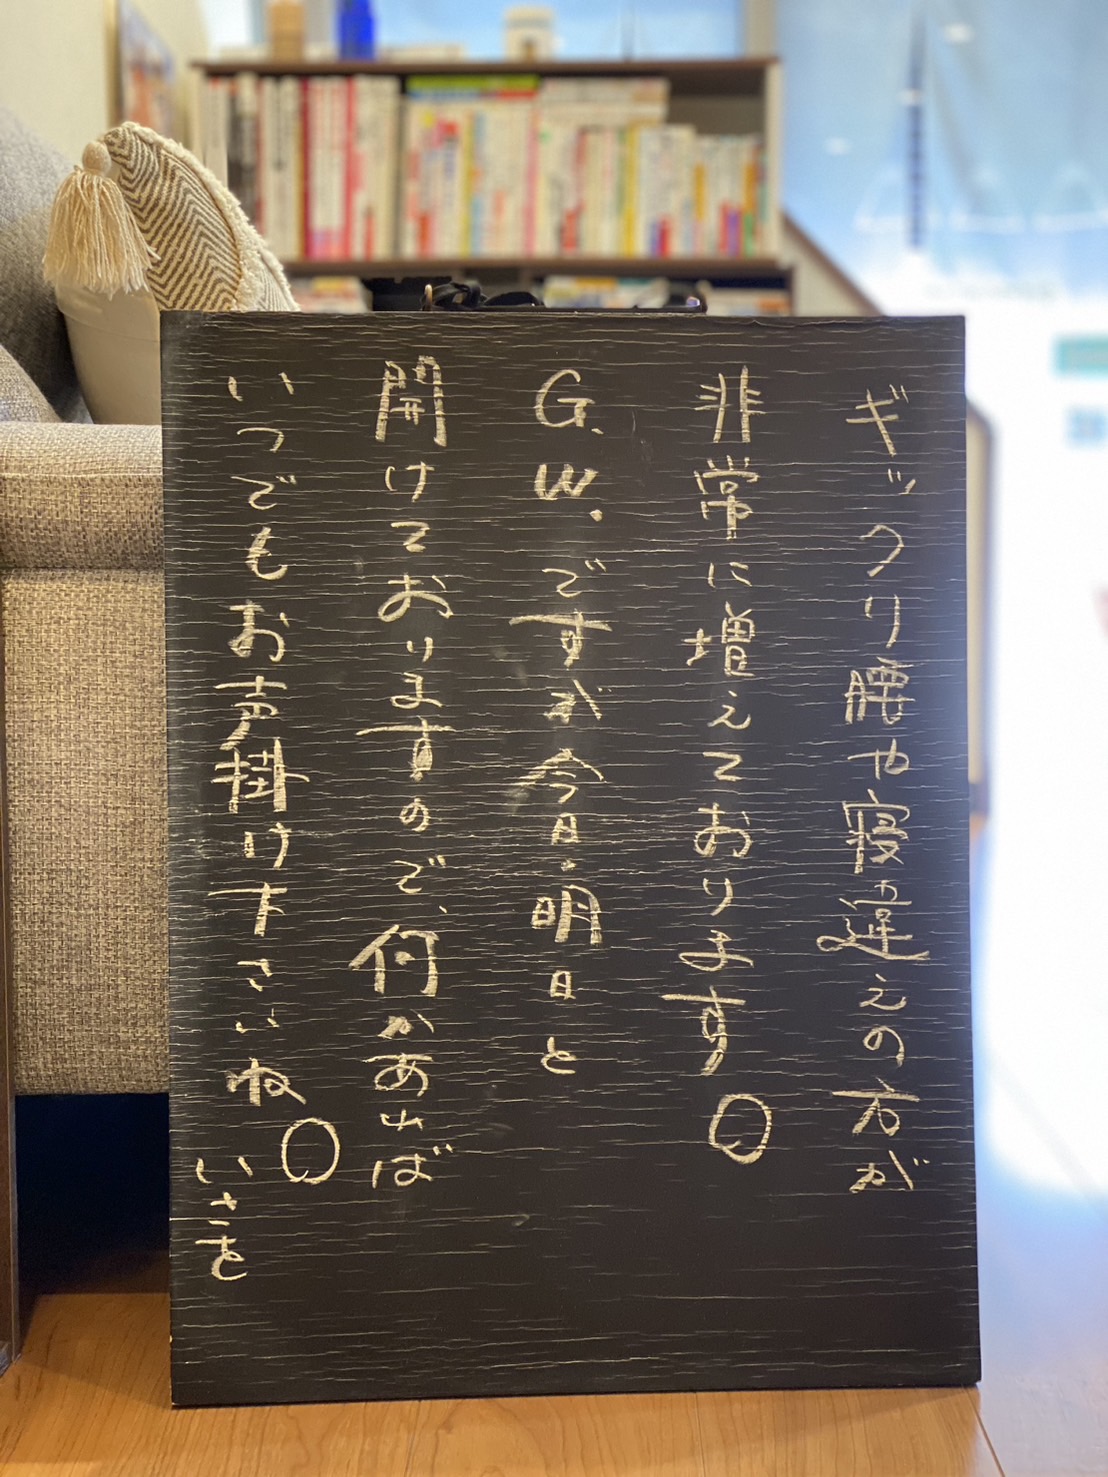 ギックリ腰や寝違えの方が
非常に増えております
G.W.ですが今日・明日と
開けておりますので、何かあれば
いつでもお声掛け下さいね